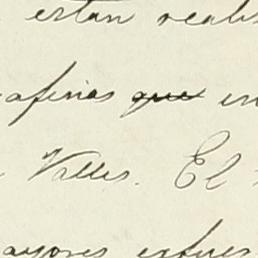 estan realis
afinas que en
Valles. El
ayores esfuer